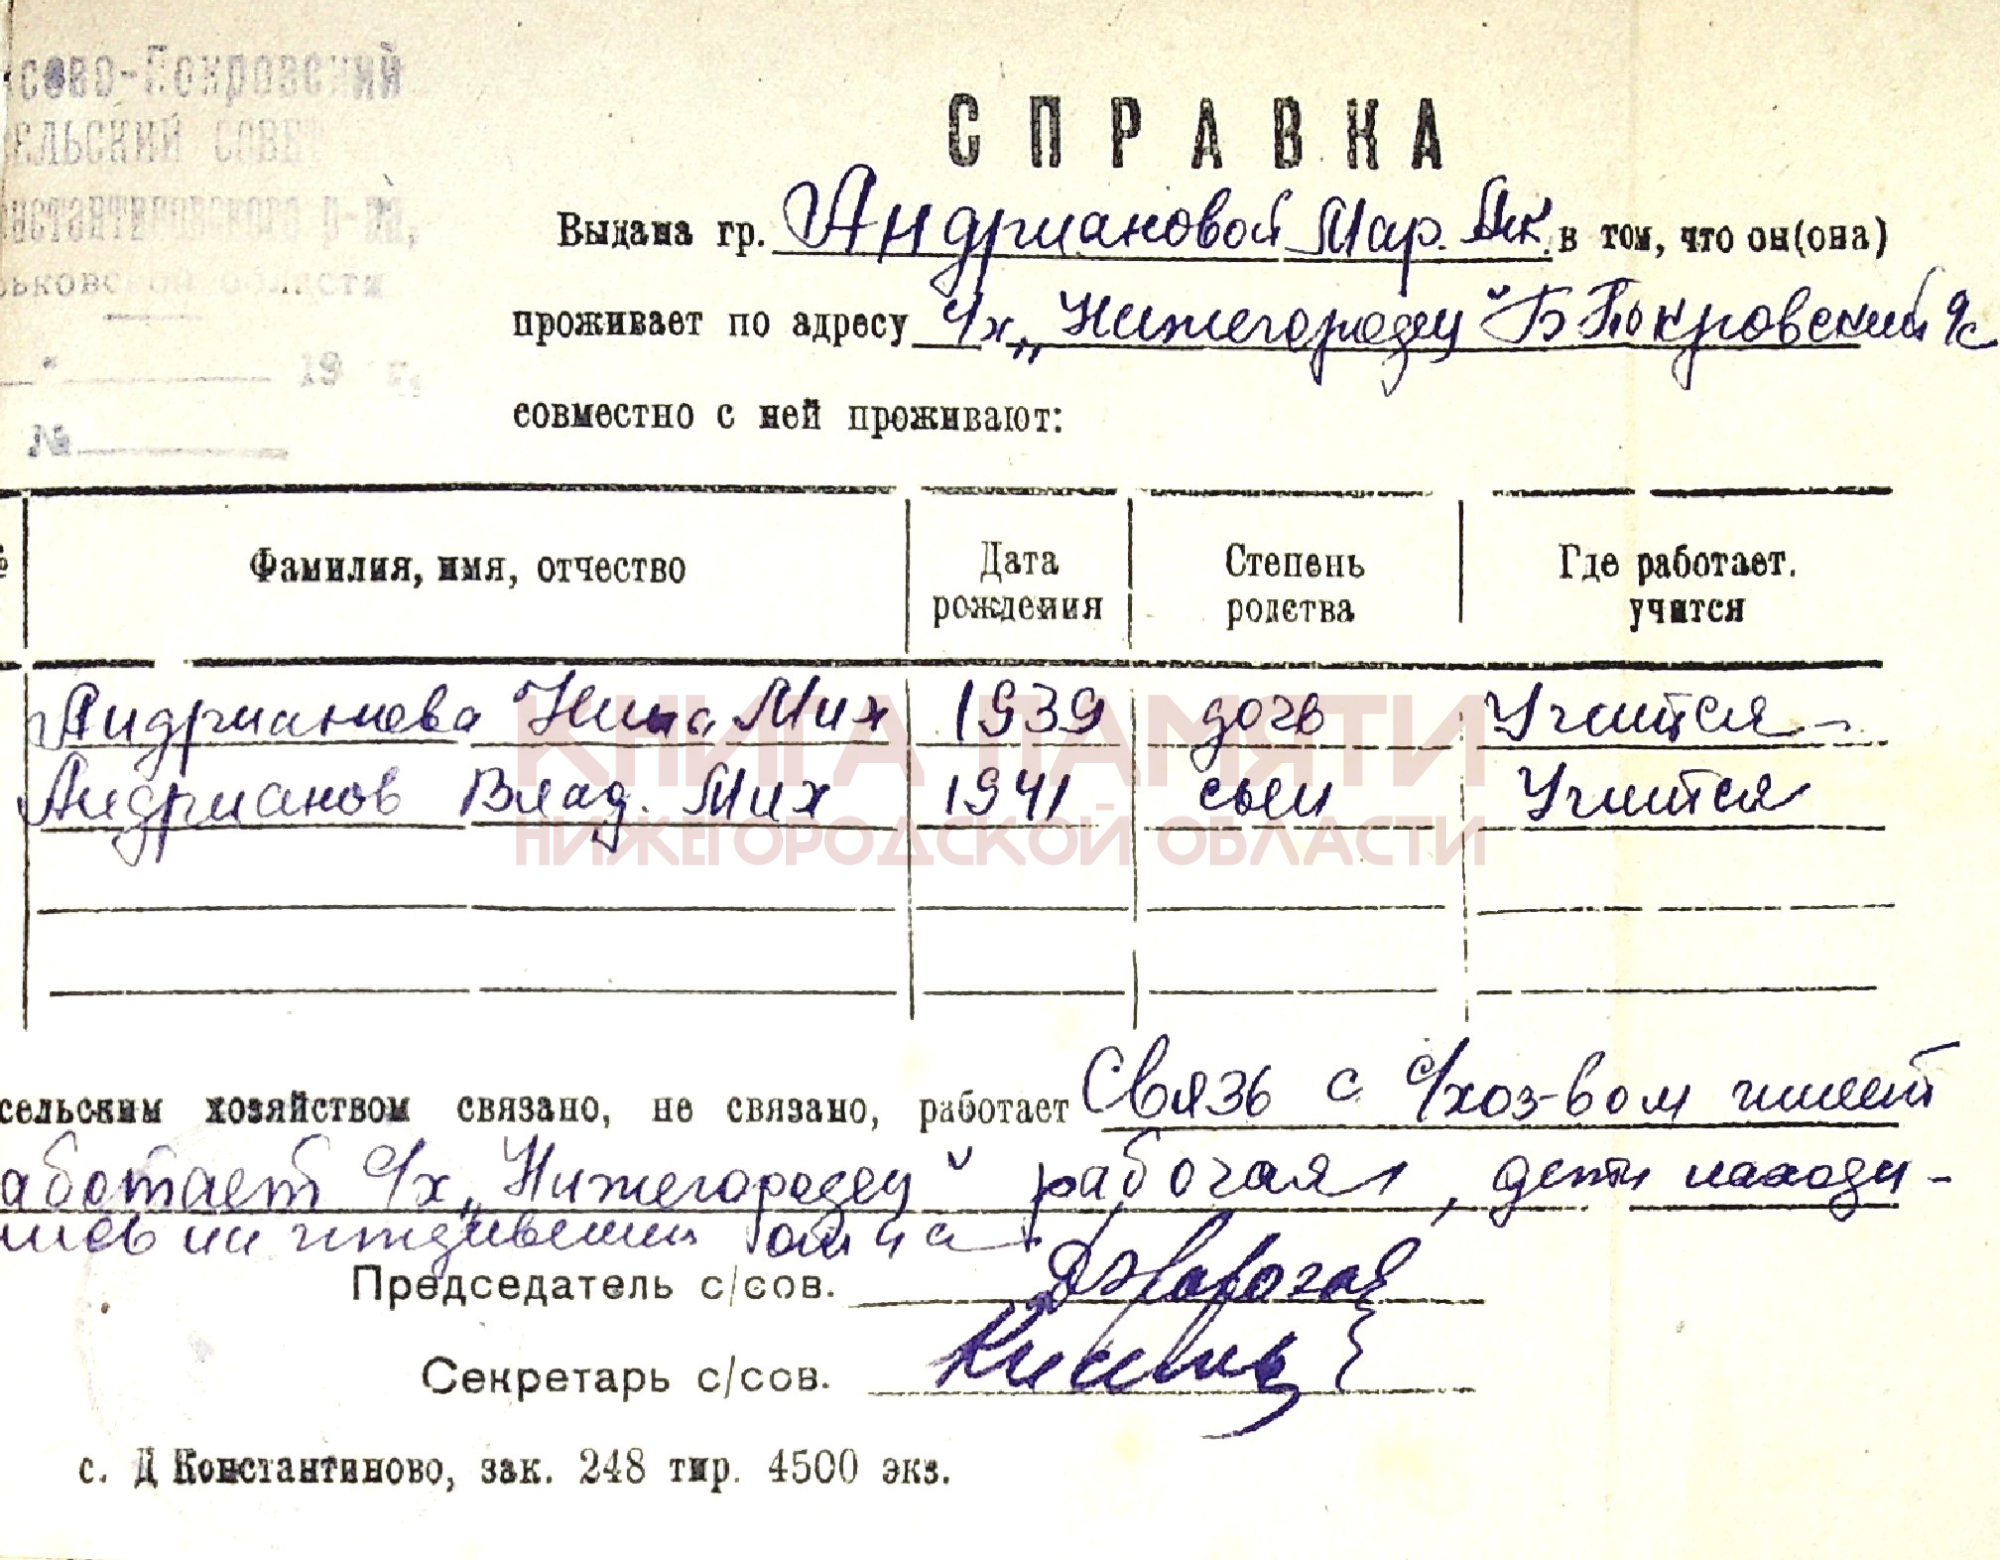 сово-Покровский
ЕЛЬСКИЙ СОВЕТ
онстантиновского р-на,
рьковской области
19 г.
№
СПРАВКА
Выдана гр. Андриановой Мар. Як. в том, что он(она)
проживает по адресу с/х „Нижегородец" Б Покровский с/с
совместно с ней проживают:
№ Фамилия, имя, отчество Дата рождения Степень родства Где работает. учится
Андрианова Нина Мих 1939 дочь Учится
Андрианов Влад. Мих 1941 сын Учится
КНИГА ПАМЯТИ
НИЖЕГОРОДСКОЙ ОБЛАСТИ
сельским хозяйством связано, не связано, работает Связь с с/хоз-вом имеет
аботает с/х „Нижегородец" рабочая, дети находи-
лись на иждивении отца
Председатель с/сов.
Секретарь с/сов.
с. Д Константиново, зак. 248 тир. 4500 экз.